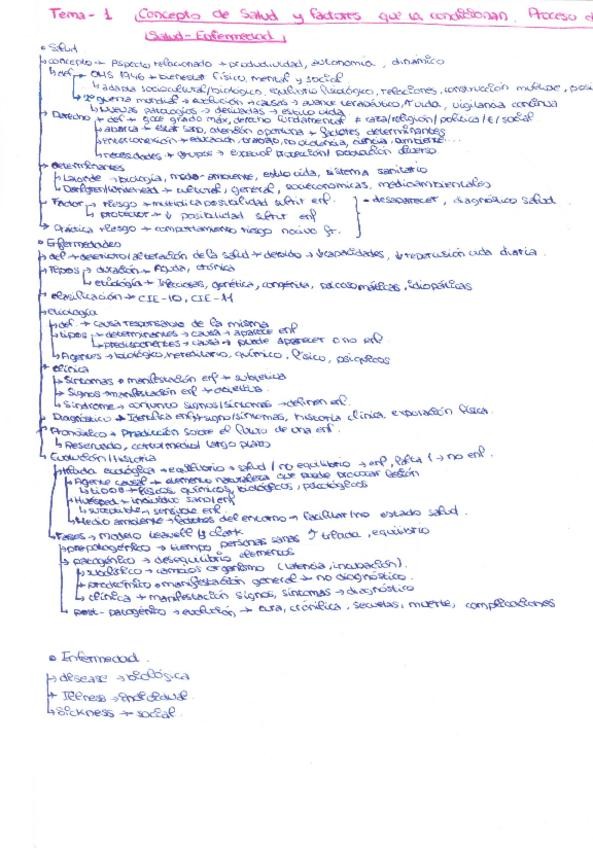 Tema-1 Concepto de Salud y factores que la condicionan. Proceso d
Salud-Enfermedad
• Salud
→ concepto → Aspecto relacionado → productividad, autonomía, dinámico
→ def → OMS 1946 → bienestar físico, mental y social
↳ adapta sociocultural/biológico, equilibrio fisiológico, relaciones, construcción
↳ 2ª guerra mundial → evolución → causas → avance terapéutico, ↑ vida, vigilancia continua
↳ nuevas patologías → descuidadas → estilo vida
→ Derecho → def → goce grado máx, derecho fundamental ≠ raza/religión/política/€/social
↳ abarca → estar sano, atención oportuna + factores determinantes
↳ interconexión → educación, trabajo, no violencia, ciencia, ambiente...
↳ necesidades → grupos → especial protección/ diverso
→ determinantes
↳ Lalonde → biología, medio-ambiente, estilo vida, sistema sanitario
↳ Dahlgren/Whitehead → cultural, general, socioeconómicas, medioambientales
→ Factor → riesgo → multiplica posibilidad sufrir enf. - desaparecer, diagnóstico salud.
↳ protector → ↓ posibilidad sufrir enf
→ Práctica riesgo → comportamiento riesgo nocivo fr.
• Enfermedades
→ def → deterioro/alteración de la salud → debido → ↓ capacidades, ↓ repercusión vida diaria.
→ Tipos → duración → Aguda, crónica
↳ etiología → Infecciosas, genética, congénita, psicosomáticas, idiopáticas
→ clasificación → CIE-10, CIE-11
→ etiología
↳ def. → causa responsable de la misma
↳ tipos → determinantes → causa → aparece enf
↳ predisponentes → causa → puede aparecer o no enf.
↳ Agentes → biológico, hereditario, químico, físico, psíquicos
→ clínica
↳ Síntomas → manifestación enf → subjetiva
↳ Signos → manifestación enf → objetiva.
↳ Síndrome → conjunto signos/síntomas → definen enf.
→ Diagnóstico → Identifica enf → signo/síntomas, historia clínica, exploración física.
→ Pronóstico → Predicción sobre el futuro de una enf.
↳ Reservado, corto/medio/largo plazo
→ Evolución/Historia
→ Triada ecológica → equilibrio → salud / no equilibrio → enf, falta 1 → no enf.
↳ Agente causal → elemento naturaleza que puede provocar lesión
↳ tipos → físicos, químicos, biológicos, psicológicos
↳ Huésped → individuo sano/enf
↳ susceptible, sensible enf.
↳ Medio ambiente → factores del entorno → facilitar/no estado salud.
→ Fases → modelo Leavell y Clark
↳ prepatogénico → tiempo personas sanas → triada, equilibrio
↳ patogénico → desequilibrio elementos
↳ subclínico → cambios organismo (latencia, incubación).
↳ prodrómico → manifestación general → no diagnóstico.
↳ clínica → manifestación signos, síntomas → diagnóstico
↳ post-patogénico → evolución, → cura, cronifica, secuelas, muerte, complicaciones
• Enfermedad.
→ disease → biológica
→ Illness → individual.
→ Sickness → social.